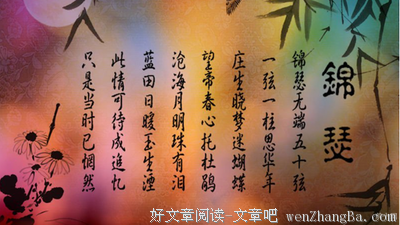 錦瑟
锦瑟无端五十弦
一弦一柱思华年
庄生晓梦迷蝴蝶
望帝春心托杜鹃
沧海月明珠有泪
蓝田日暖玉生湮
此情可待成追忆
只是当时已惘然
好文章阅读-文章吧 wenZhangBa.com